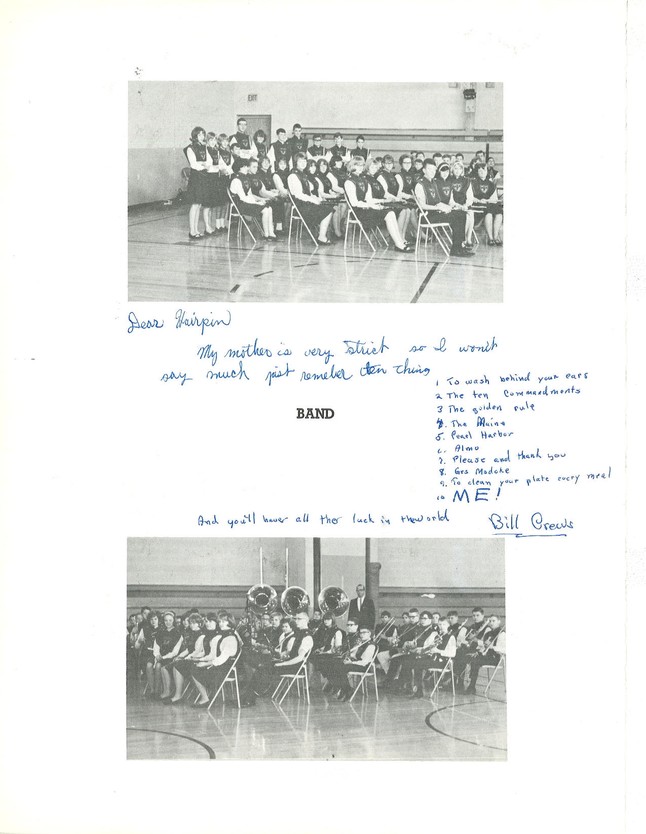 EXIT
Dear Hairpin
My mother is very strict so I won't
say much just remeber ten thing
1 To wash behind your ears
2 The ten Commandments
3 The golden rule
4. The Maine
5. Pearl Harbor
6. Almo
7. Please and thank you
8.
9. To clean your plate every meal
10 ME!
BAND
And you'll have all ther luck in theworld
Bill Crews